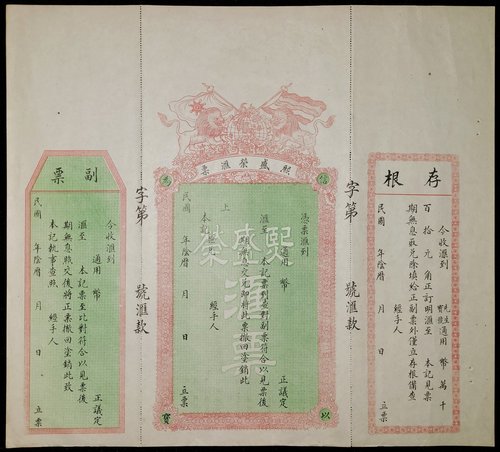 存根
今收滙到
寶號
先生
適用 幣 萬 千
百 拾 元 角正訂明滙至 本記見票
期無息敬兑除填給正副票外僅立存根備查
經手人
民國 年陰曆 月 日 立票
字第 號滙款
熙盛榮滙票
信
為
以
寶
熙盛榮
滙票
憑票滙到
適用 幣 正議定
滙至 本記票到對副票符合以見票後
期無息交兑即將此票撤回塗銷此
上
本記 經手人
民國 年陰曆 月 日 立票
字第 號滙款
副票
今收滙到
適用 幣 正議定
滙至 本記票至比對符合以見票後
期無息照交後將正票撤回塗銷此致
本記執事查照 經手人
民國 年陰曆 月 日 立票